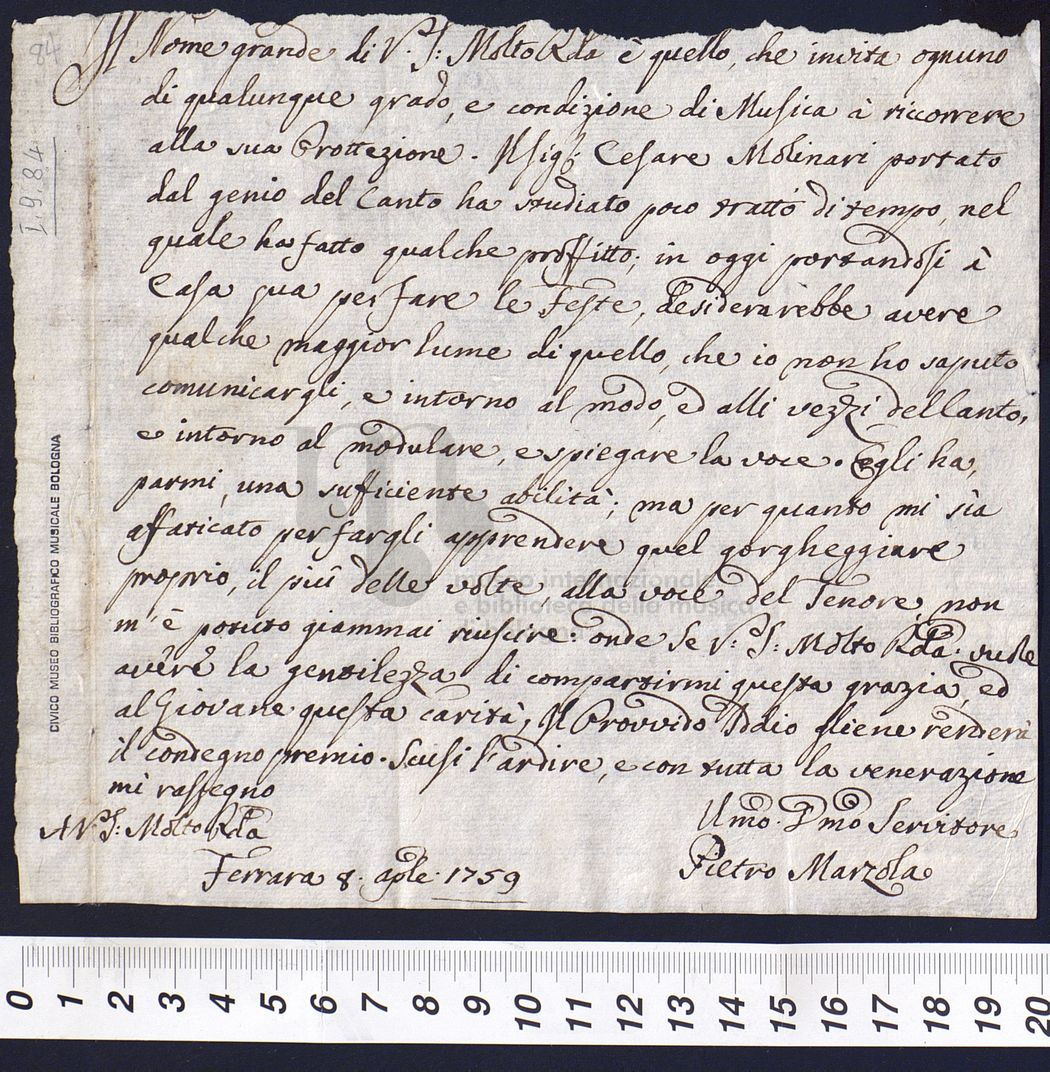 Il Nome grande di V.S: Molto Rda è quello, che invita ognuno
di qualunque grado, e condizione di Musica à riccorrere
alla sua Prottezione. Il sigr Cesare Molinari portato
dal genio del Canto ha studiato poco tratto di tempo, nel
quale ha fatto qualche proffitto; in oggi portandosi à
Casa sua per fare le Feste, desiderarebbe avere
qualche maggior lume di quello, che io non ho saputo
comunicargli, e intorno al modo, ed alli vezzi del Canto,
e intorno al modulare, e spiegare la voce. Egli ha,
parmi, una sufficiente abilità; ma per quanto mi sia
affaticato per fargli apprendere quel gorgheggiare
proprio, il più delle volte, alla voce del Tenore, non
m'è potuto giammai riuscire. onde se V.S: Molto Rda. vuole
avere la gentilezza di compartirmi questa grazia, ed
al Giovane questa carità, Il Provvido Iddio gliene renderà
il condegno premio. Scusi l'ardire, e con tutta la venerazione
mi rassegno
A V.S: Molto Rda
Umo. Dmo Servitore
Ferrara 8. aple. 1759
Pietro Marzola
84
I.9.84
CIVICO MUSEO BIBLIOGRAFICO MUSICALE BOLOGNA
museo internazionale
e biblioteca della musica
0 1 2 3 4 5 6 7 8 9 10 11 12 13 14 15 16 17 18 19 20